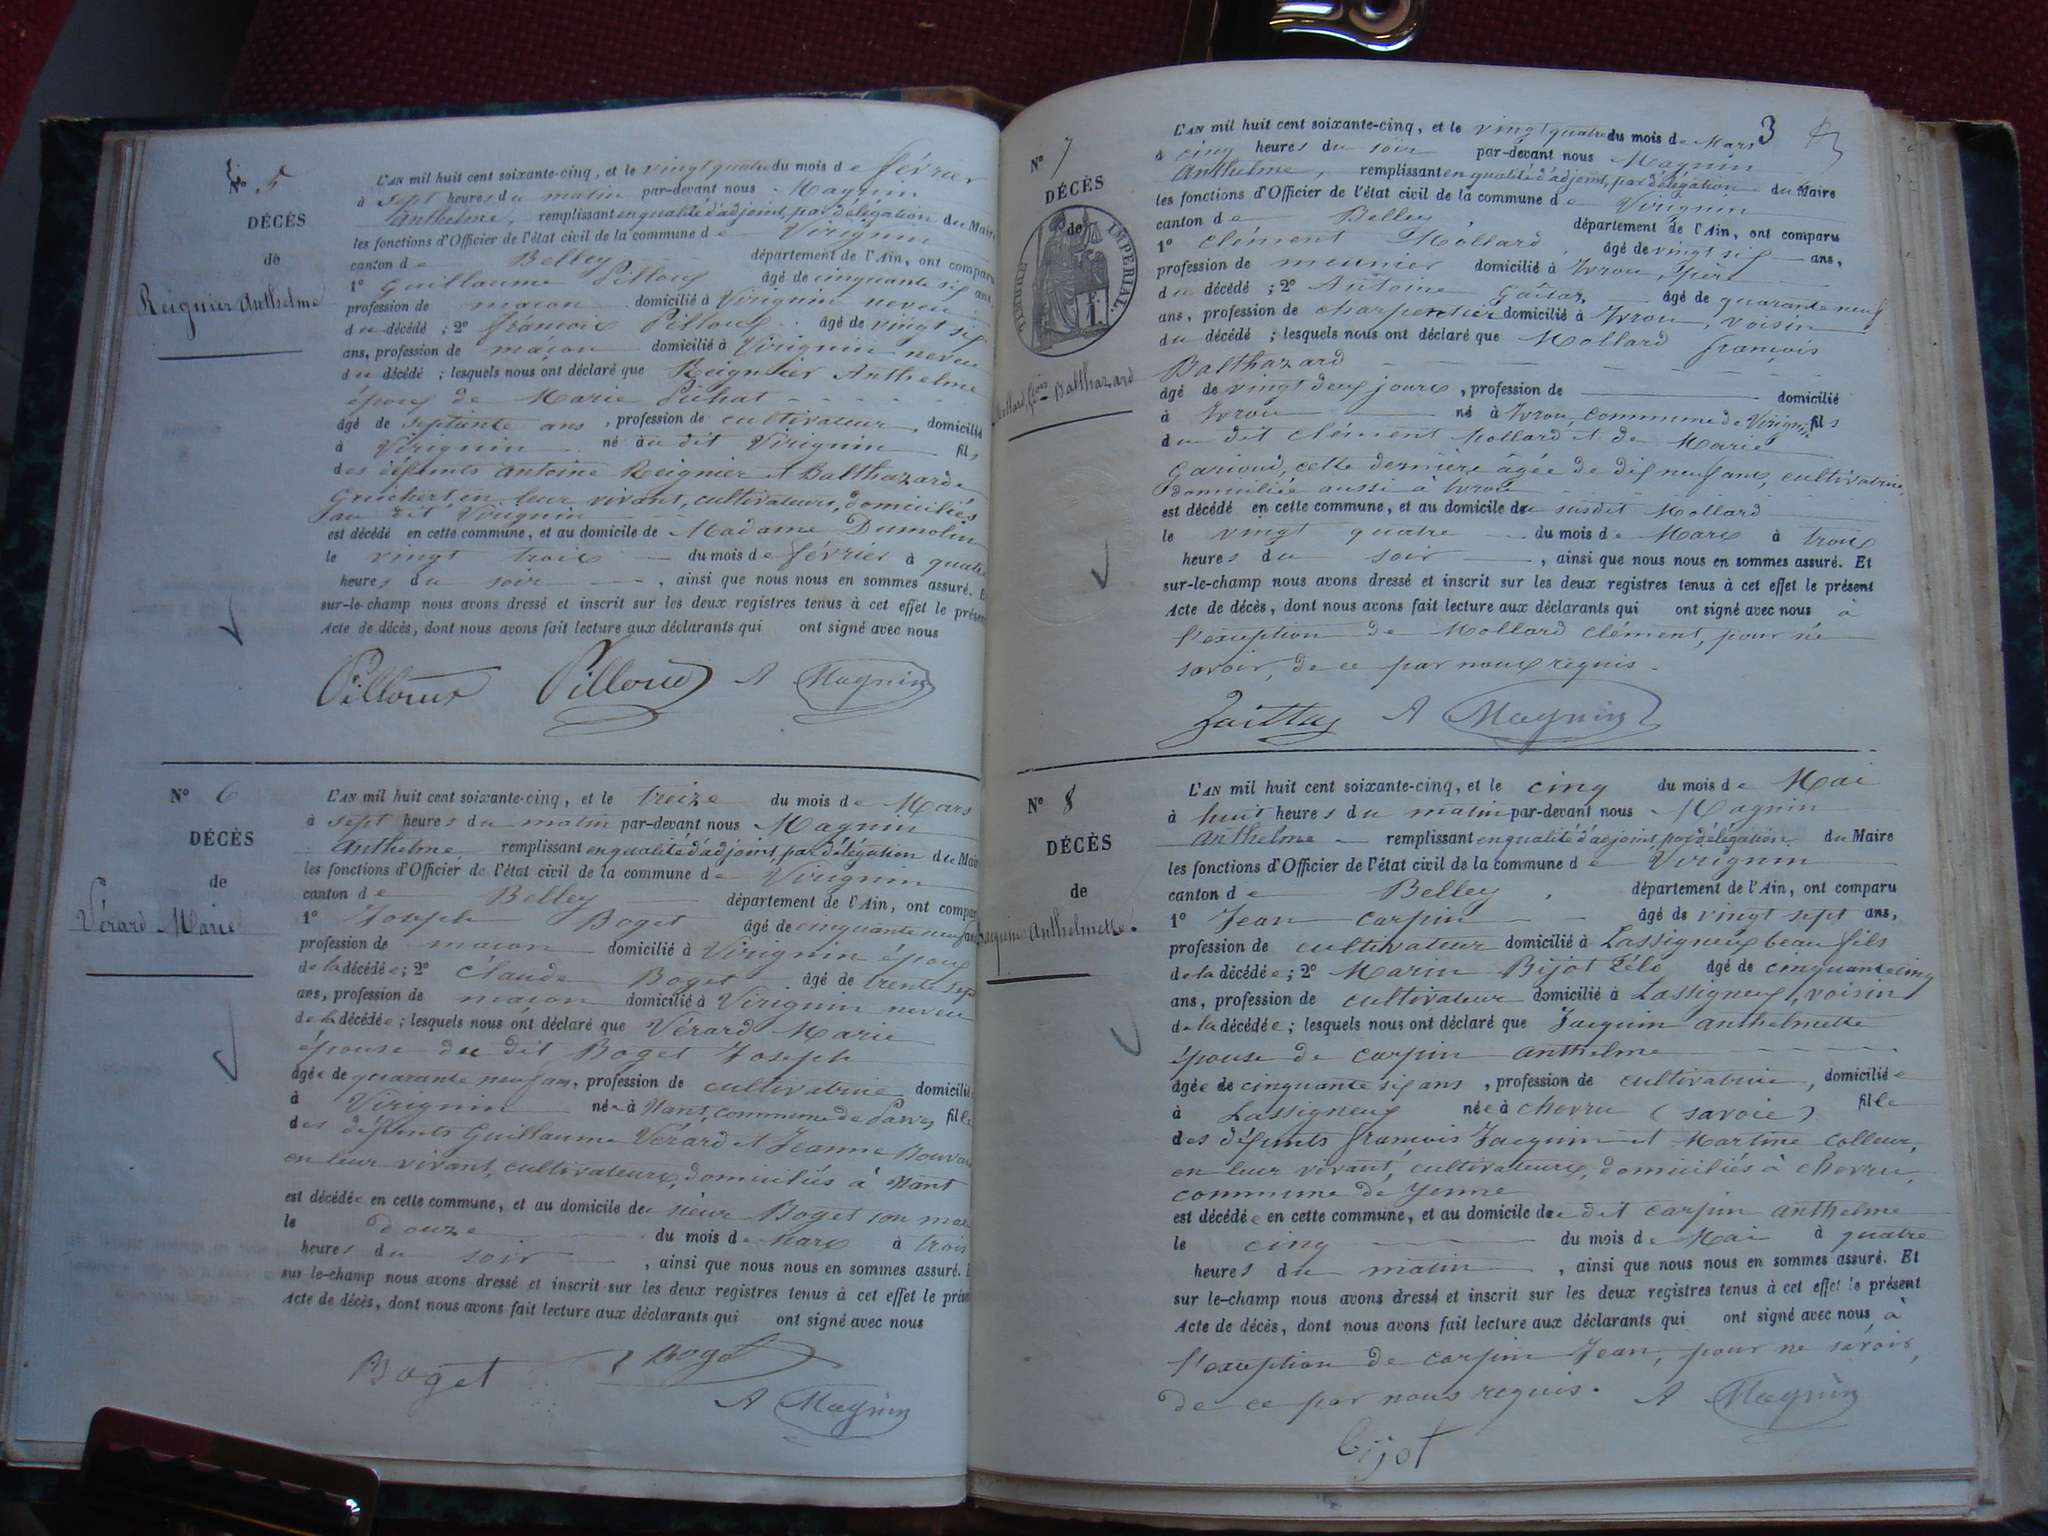 N° 5
DÉCÈS
de
Reignier Anthelme
L'AN mil huit cent soixante-cinq, et le vingt quatre du mois de février
à sept heures du matin par-devant nous Magnin
Anthelme, remplissant en qualité d'adjoint, par délégation du Maire
les fonctions d'Officier de l'état civil de la commune de Virignin
canton de Belley département de l'Ain, ont comparu
1° Guillaume Pilloux âgé de cinquante six ans,
profession de maçon domicilié à Virignin neveu
du décédé ; 2° françois Pilloux âgé de vingt six
ans, profession de maçon domicilié à Virignin neveu
du décédé ; lesquels nous ont déclaré que Reignier Anthelme
époux de Marie Pichat
âgé de septante ans, profession de cultivateur, domicilié
à Virignin né au dit Virignin fils
des défunts Antoine Reignier et Balthazarde
Guichert en leur vivant, cultivateurs, domiciliés
au dit Virignin
est décédé en cette commune, et au domicile de Madame Dumolin
le vingt trois du mois de février à quatre
heures du soir, ainsi que nous nous en sommes assuré. Et
sur-le-champ nous avons dressé et inscrit sur les deux registres tenus à cet effet le présent
Acte de décès, dont nous avons fait lecture aux déclarants qui ont signé avec nous
Pilloux Pilloux A Magnin
N° 6
DÉCÈS
de
Vérard Marie
L'AN mil huit cent soixante-cinq, et le treize du mois de Mars
à sept heures du matin par-devant nous Magnin
Anthelme remplissant en qualité d'adjoint, par délégation du Maire
les fonctions d'Officier de l'état civil de la commune de Virignin
canton de Belley département de l'Ain, ont comparu
1° Joseph Boget âgé de cinquante neuf ans
profession de maçon domicilié à Virignin époux
de la décédée ; 2° Claude Boget âgé de trente sept
ans, profession de maçon domicilié à Virignin neveu
de la décédée ; lesquels nous ont déclaré que Vérard Marie
épouse du dit Boget Joseph
âgée de quarante neuf ans, profession de cultivatrice domiciliée
à Virignin née à Nant, commune de Parves fille
des défunts Guillaume Vérard et Jeanne Bouvard
en leur vivant, cultivateurs, domiciliés à Nant
est décédée en cette commune, et au domicile du sieur Boget son mari
le douze du mois de Mars à trois
heures du soir, ainsi que nous nous en sommes assuré. Et
sur-le-champ nous avons dressé et inscrit sur les deux registres tenus à cet effet le présent
Acte de décès, dont nous avons fait lecture aux déclarants qui ont signé avec nous
Boget Boget
A Magnin
3
N° 7
DÉCÈS
de
TIMBRE IMPÉRIAL
Mollard fçois Balthazard
L'AN mil huit cent soixante-cinq, et le vingt quatre du mois de Mars
à cinq heures du soir par-devant nous Magnin
Anthelme, remplissant en qualité d'adjoint, par délégation du Maire
les fonctions d'Officier de l'état civil de la commune de Virignin
canton de Belley, département de l'Ain, ont comparu
1° Clément Mollard âgé de vingt six ans,
profession de meunier domicilié à Ivrou, Père
du décédé ; 2° Antoine âgé de quarante neuf
ans, profession de charpentier domicilié à Ivrou, voisin
du décédé ; lesquels nous ont déclaré que Mollard françois
Balthazard
âgé de vingt deux jours, profession de domicilié
à Ivrou né à Ivrou, commune de Virignin fils
du dit Clément Mollard et de Marie
Garioud, cette dernière âgée de dix neuf ans, cultivatrice,
domiciliée aussi à Ivrou
est décédé en cette commune, et au domicile du susdit Mollard
le vingt quatre du mois de Mars à trois
heures du soir, ainsi que nous nous en sommes assuré. Et
sur-le-champ nous avons dressé et inscrit sur les deux registres tenus à cet effet le présent
Acte de décès, dont nous avons fait lecture aux déclarants qui ont signé avec nous à
l'exception de Mollard Clément, pour ne
savoir, de ce par nous requis.
A Magnin
N° 8
DÉCÈS
de
Jacquin Anthelmette
L'AN mil huit cent soixante-cinq, et le cinq du mois de Mai
à huit heures du matin par-devant nous Magnin
Anthelme remplissant en qualité d'adjoint, par délégation du Maire
les fonctions d'Officier de l'état civil de la commune de Virignin
canton de Belley, département de l'Ain, ont comparu
1° Jean Carpin âgé de vingt sept ans,
profession de cultivateur domicilié à Lassigneux beau fils
de la décédée ; 2° Marin Bijot Félix âgé de cinquante cinq
ans, profession de cultivateur domicilié à Lassigneux, voisin
de la décédée ; lesquels nous ont déclaré que Jacquin Anthelmette
épouse de Carpin Anthelme
âgée de cinquante six ans, profession de cultivatrice, domiciliée
à Lassigneux née à Chevru (Savoie) fille
des défunts françois Jacquin et Martine Colleur,
en leur vivant, cultivateurs, domiciliés à Chevru,
commune de Yenne
est décédée en cette commune, et au domicile du dit Carpin Anthelme
le cinq du mois de Mai à quatre
heures du matin, ainsi que nous nous en sommes assuré. Et
sur-le-champ nous avons dressé et inscrit sur les deux registres tenus à cet effet le présent
Acte de décès, dont nous avons fait lecture aux déclarants qui ont signé avec nous, à
l'exception de Carpin Jean, pour ne savoir,
de ce par nous requis. A Magnin
Bijot